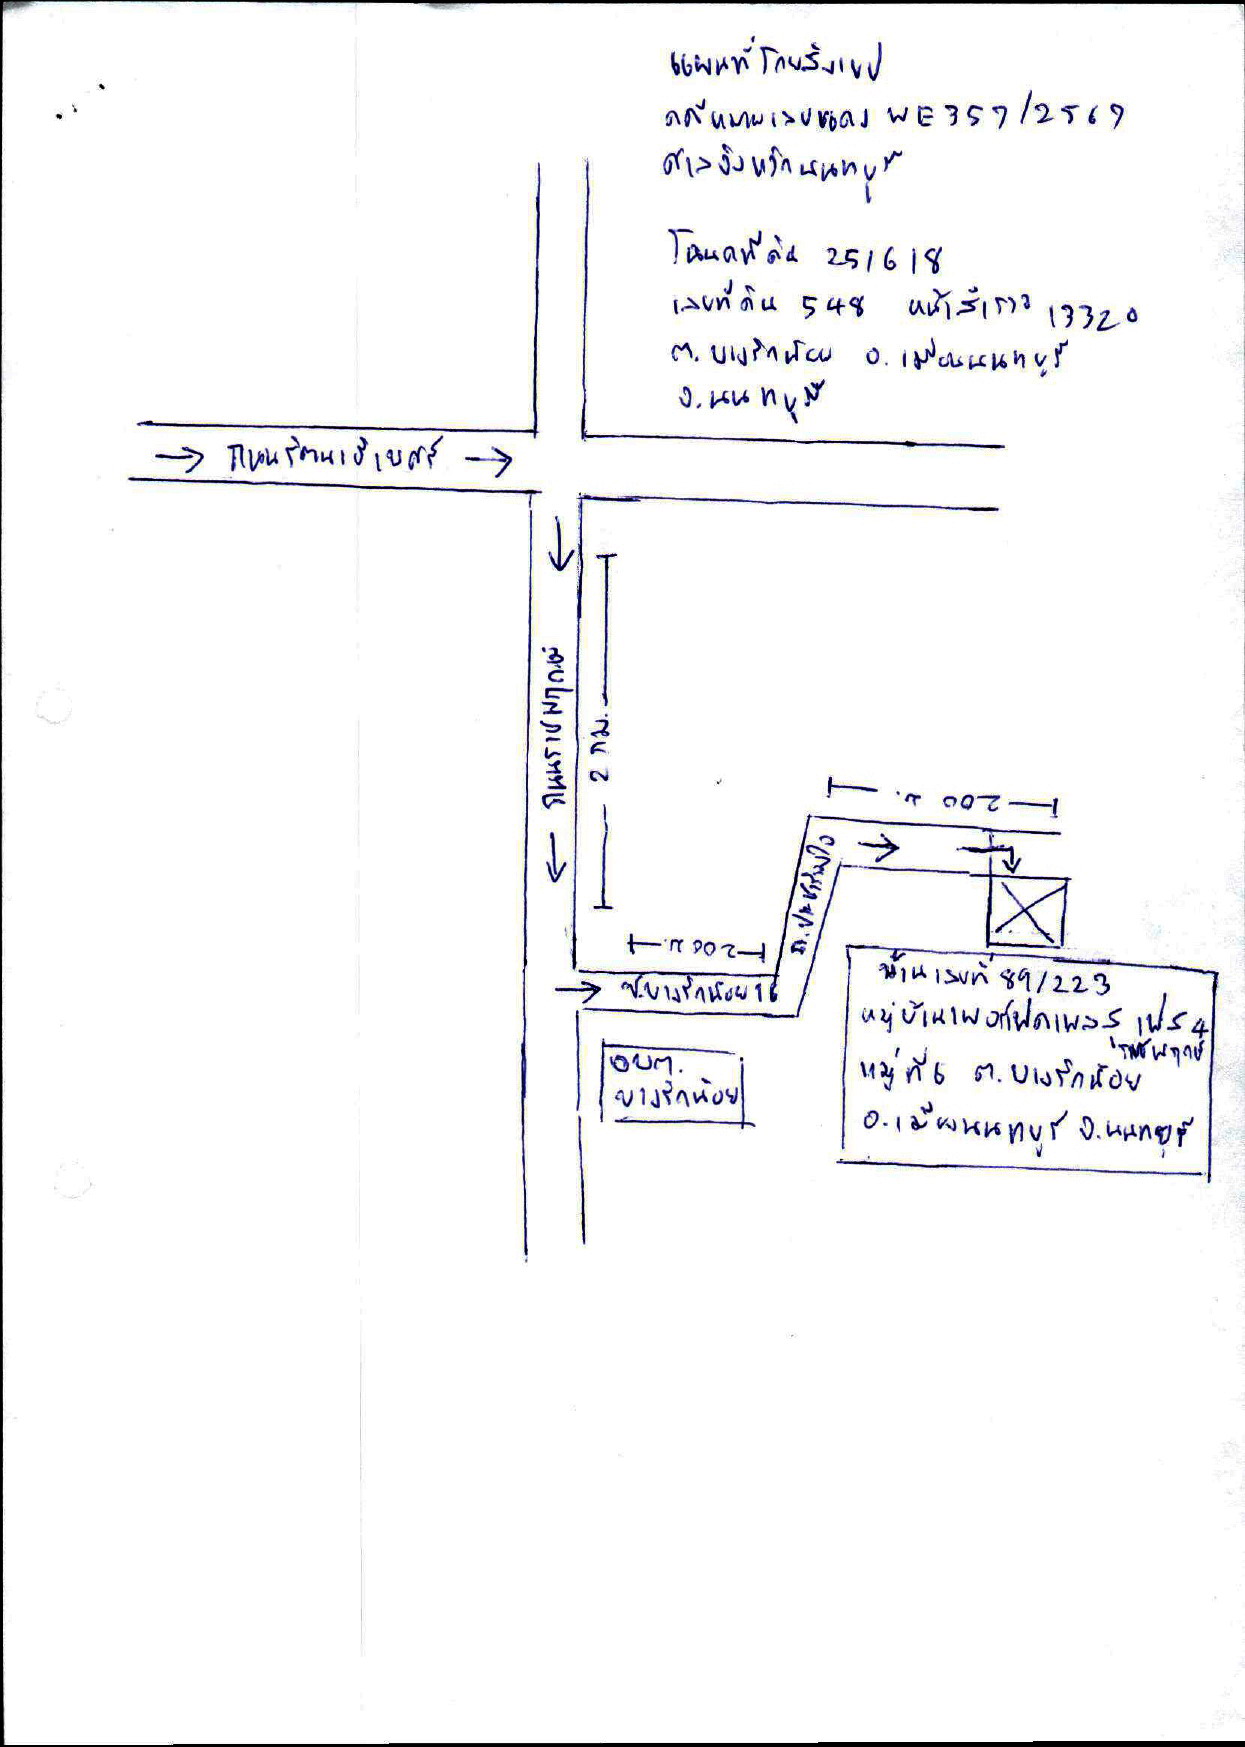 แผนที่โดยสังเขป
คดีหมายเลขแดง ผบE357/2567
ศาลจังหวัดนนทบุรี
โฉนดที่ดิน 251618
เลขที่ดิน 548 หน้าสำรวจ 13320
ต.บางรักน้อย อ.เมืองนนทบุรี
จ.นนทบุรี
→ ถนนรัตนาธิเบศร์ →
ถนนราชพฤกษ์
2 กม.
200 ม.
ถ.ประชาร่วมใจ
200 ม.
ซ.บางรักน้อย 16
อบต.
บางรักน้อย
บ้านเลขที่ 89/223
หมู่บ้านเพอร์เฟคเพลส เฟส 4
ราชพฤกษ์
หมู่ที่ 6 ต.บางรักน้อย
อ.เมืองนนทบุรี จ.นนทบุรี